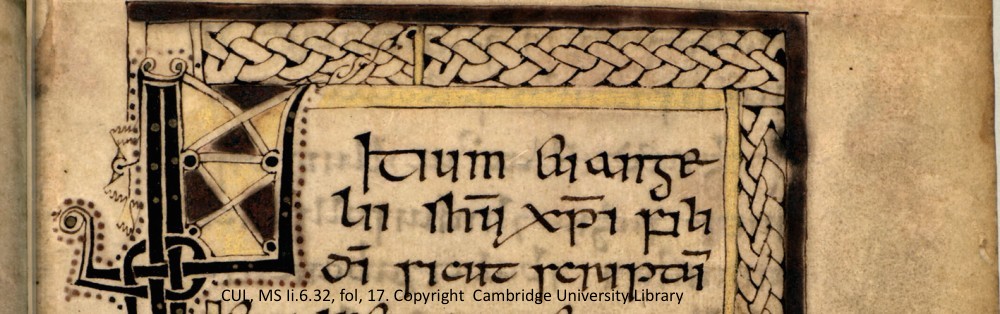 INItium euange
lii ihū xp̄i fili
dī sicut scriptū
CUL, MS Ii.6.32, fol, 17. Copyright Cambridge University Library